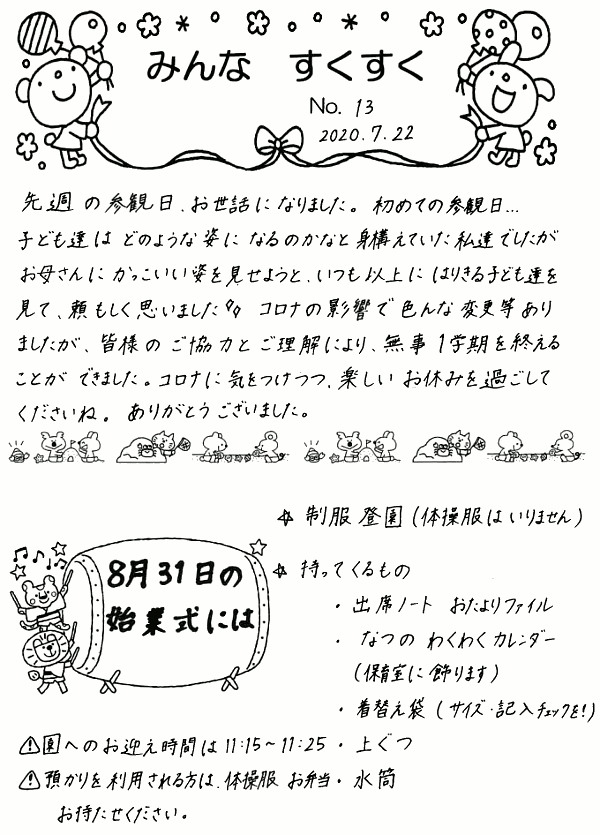 みんな すくすく
No. 13
2020.7.22
先週の参観日、お世話になりました。初めての参観日…
子ども達はどのような姿になるのかなと身構えていた私達でしたが
お母さんにかっこいい姿を見せようと、いつも以上にはりきる子ども達を
見て、頼もしく思いました。コロナの影響で色んな変更等あり
ましたが、皆様のご協力とご理解により、無事1学期を終える
ことができました。コロナに気をつけつつ、楽しいお休みを過ごして
くださいね。ありがとうございました。
8月31日の
始業式には
☆ 制服登園(体操服はいりません)
☆ 持ってくるもの
・出席ノート おたよりファイル
・なつのわくわくカレンダー
(保育室に飾ります)
・着替え袋(サイズ・記入チェックを!)
・上ぐつ
・水筒
⚠園へのお迎え時間は11:15~11:25
⚠預かりを利用される方は、体操服 お弁当
お持たせください。